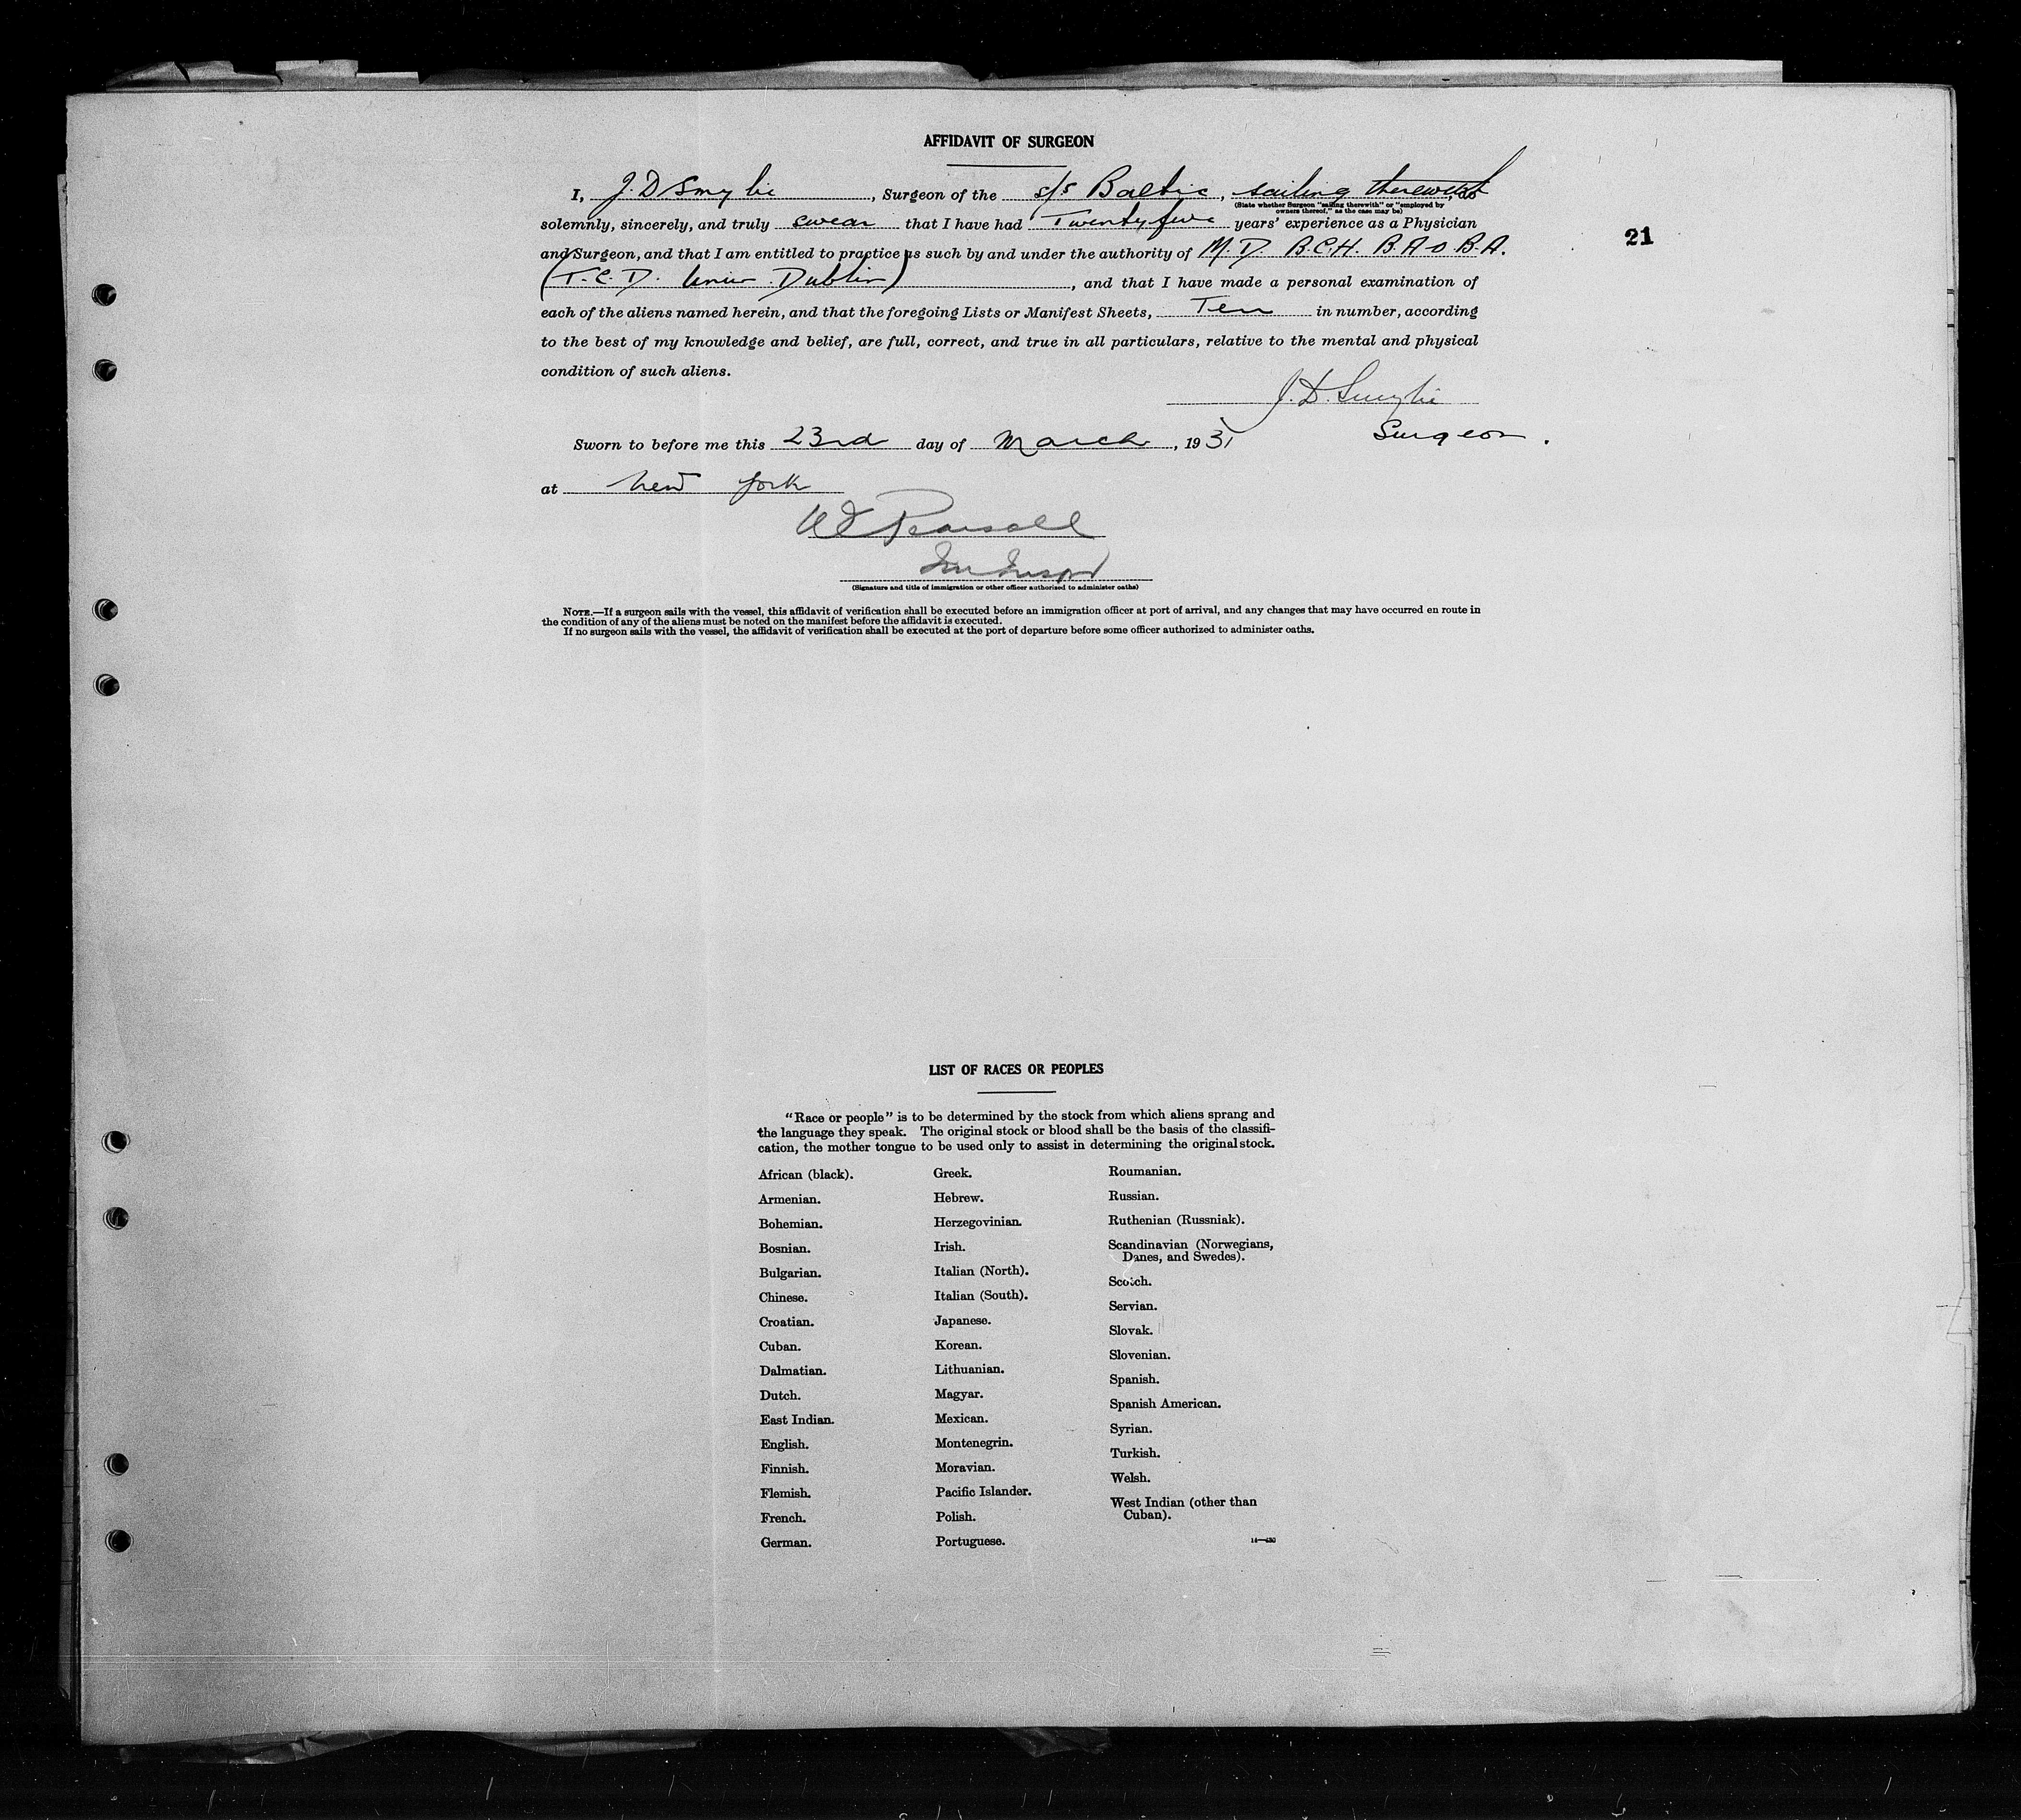 AFFIDAVIT OF SURGEON
I, J. D. Smylie, Surgeon of the s/s Baltic, sailing therewith, do
(State whether Surgeon "sailing therewith" or "employed by
owners thereof," as the case may be)
solemnly, sincerely, and truly swear that I have had Twenty five years' experience as a Physician
21
and Surgeon, and that I am entitled to practice as such by and under the authority of M. D. B.C.H. B.A.O. B.A.
(T.C.D. Univ. Dublin), and that I have made a personal examination of
each of the aliens named herein, and that the foregoing Lists or Manifest Sheets, Ten in number, according
to the best of my knowledge and belief, are full, correct, and true in all particulars, relative to the mental and physical
condition of such aliens.
J. D. Smylie
Surgeon.
Sworn to before me this 23rd day of March, 1931
at New York
Pearsall
Imm Inspr
(Signature and title of immigration or other officer authorized to administer oaths)
NOTE.—If a surgeon sails with the vessel, this affidavit of verification shall be executed before an immigration officer at port of arrival, and any changes that may have occurred en route in
the condition of any of the aliens must be noted on the manifest before the affidavit is executed.
If no surgeon sails with the vessel, the affidavit of verification shall be executed at the port of departure before some officer authorized to administer oaths.
LIST OF RACES OR PEOPLES
"Race or people" is to be determined by the stock from which aliens sprang and
the language they speak. The original stock or blood shall be the basis of the classifi-
cation, the mother tongue to be used only to assist in determining the original stock.
African (black).
Armenian.
Bohemian.
Bosnian.
Bulgarian.
Chinese.
Croatian.
Cuban.
Dalmatian.
Dutch.
East Indian.
English.
Finnish.
Flemish.
French.
German.
Greek.
Hebrew.
Herzegovinian.
Irish.
Italian (North).
Italian (South).
Japanese.
Korean.
Lithuanian.
Magyar.
Mexican.
Montenegrin.
Moravian.
Pacific Islander.
Polish.
Portuguese.
Roumanian.
Russian.
Ruthenian (Russniak).
Scandinavian (Norwegians,
Danes, and Swedes).
Scotch.
Servian.
Slovak.
Slovenian.
Spanish.
Spanish American.
Syrian.
Turkish.
Welsh.
West Indian (other than
Cuban).